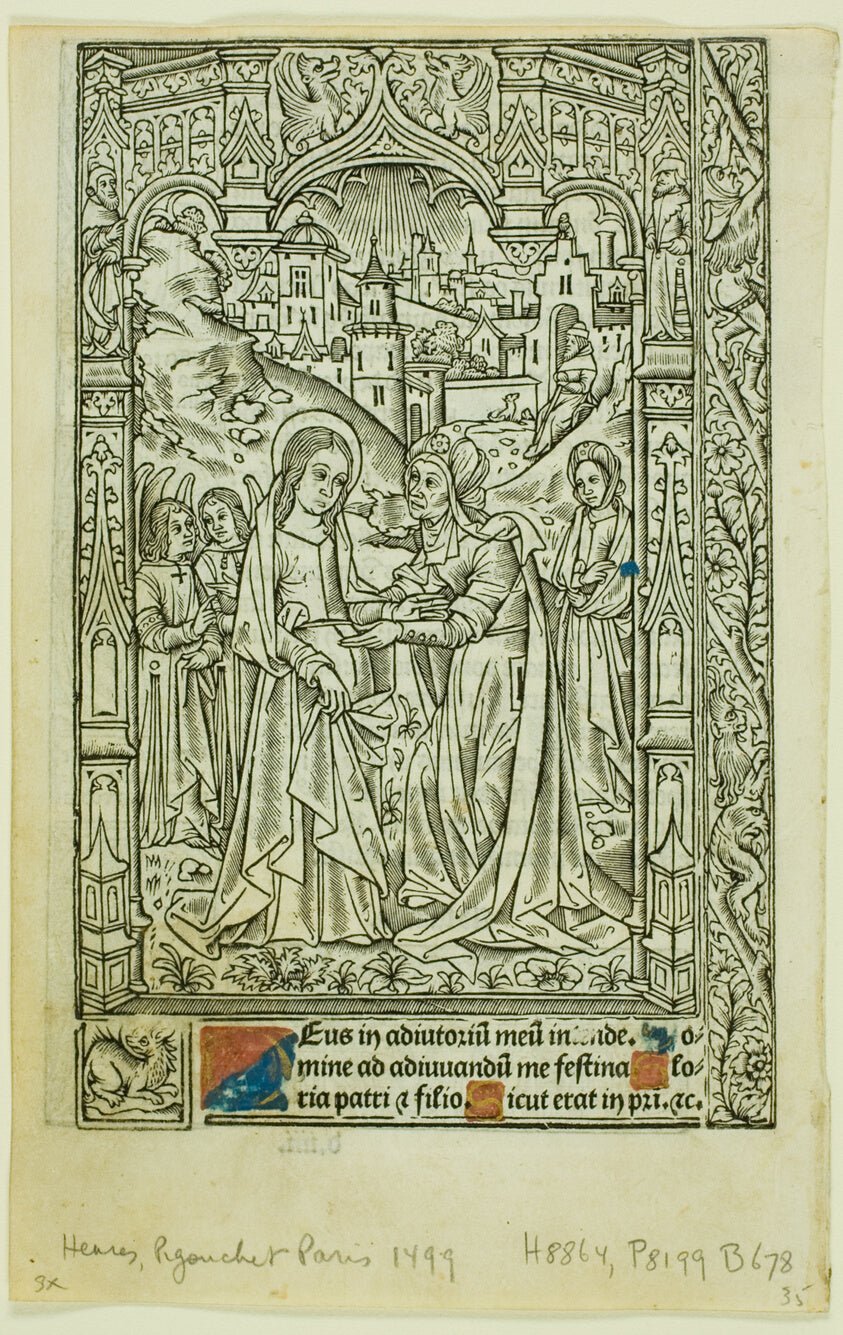 Eus in adiutoriū meū in nde. o⸗
mine ad adiuuandū me festina lo⸗
ria patri ⁊ filio. Sicut erat in pri. ⁊c.
Heures, Pigouchet Paris 1499 H8864, P8199 B678
3x
35